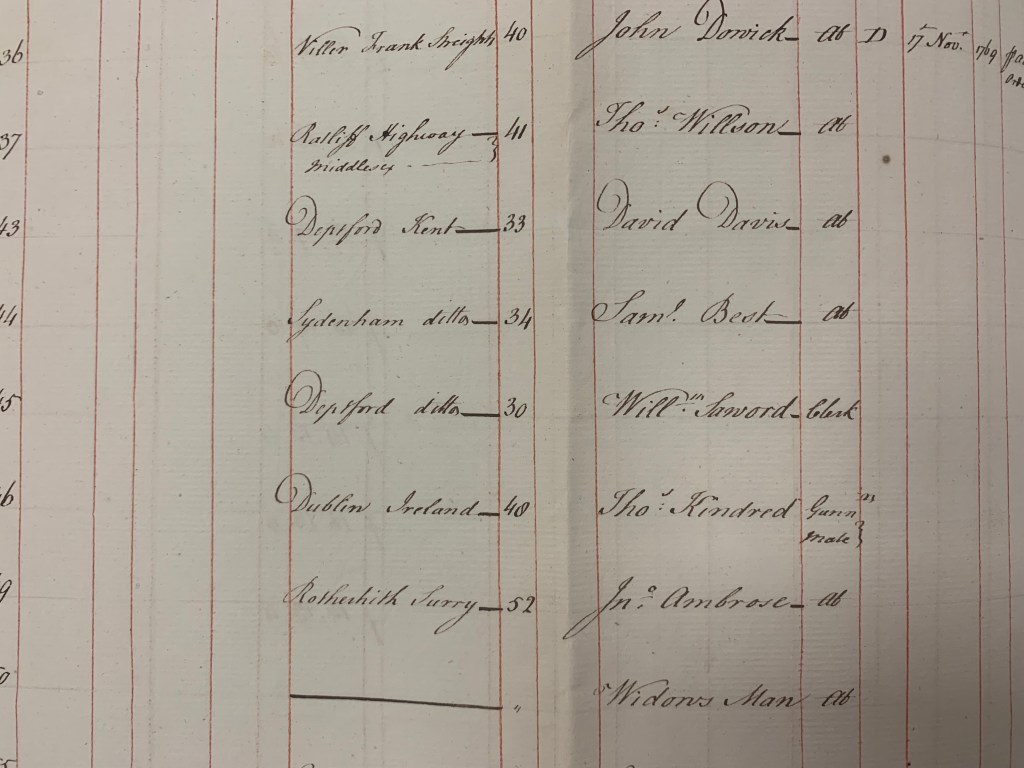 36 40 John Dowick ab D 17 Novr. 1769
37 Ratliff Highway 41 Thos. Willson ab
Middlesex
43 Deptford Kent 33 David Davis ab
44 Sydenham ditto 34 Saml. Best ab
45 Deptford ditto 30 Willm. Saword Clerk
46 Dublin Ireland 40 Thos. Kindred Gunnrs
Mate
9 Rotherhith Surry 52 Jno. Ambrose ab
" Widows Man ab